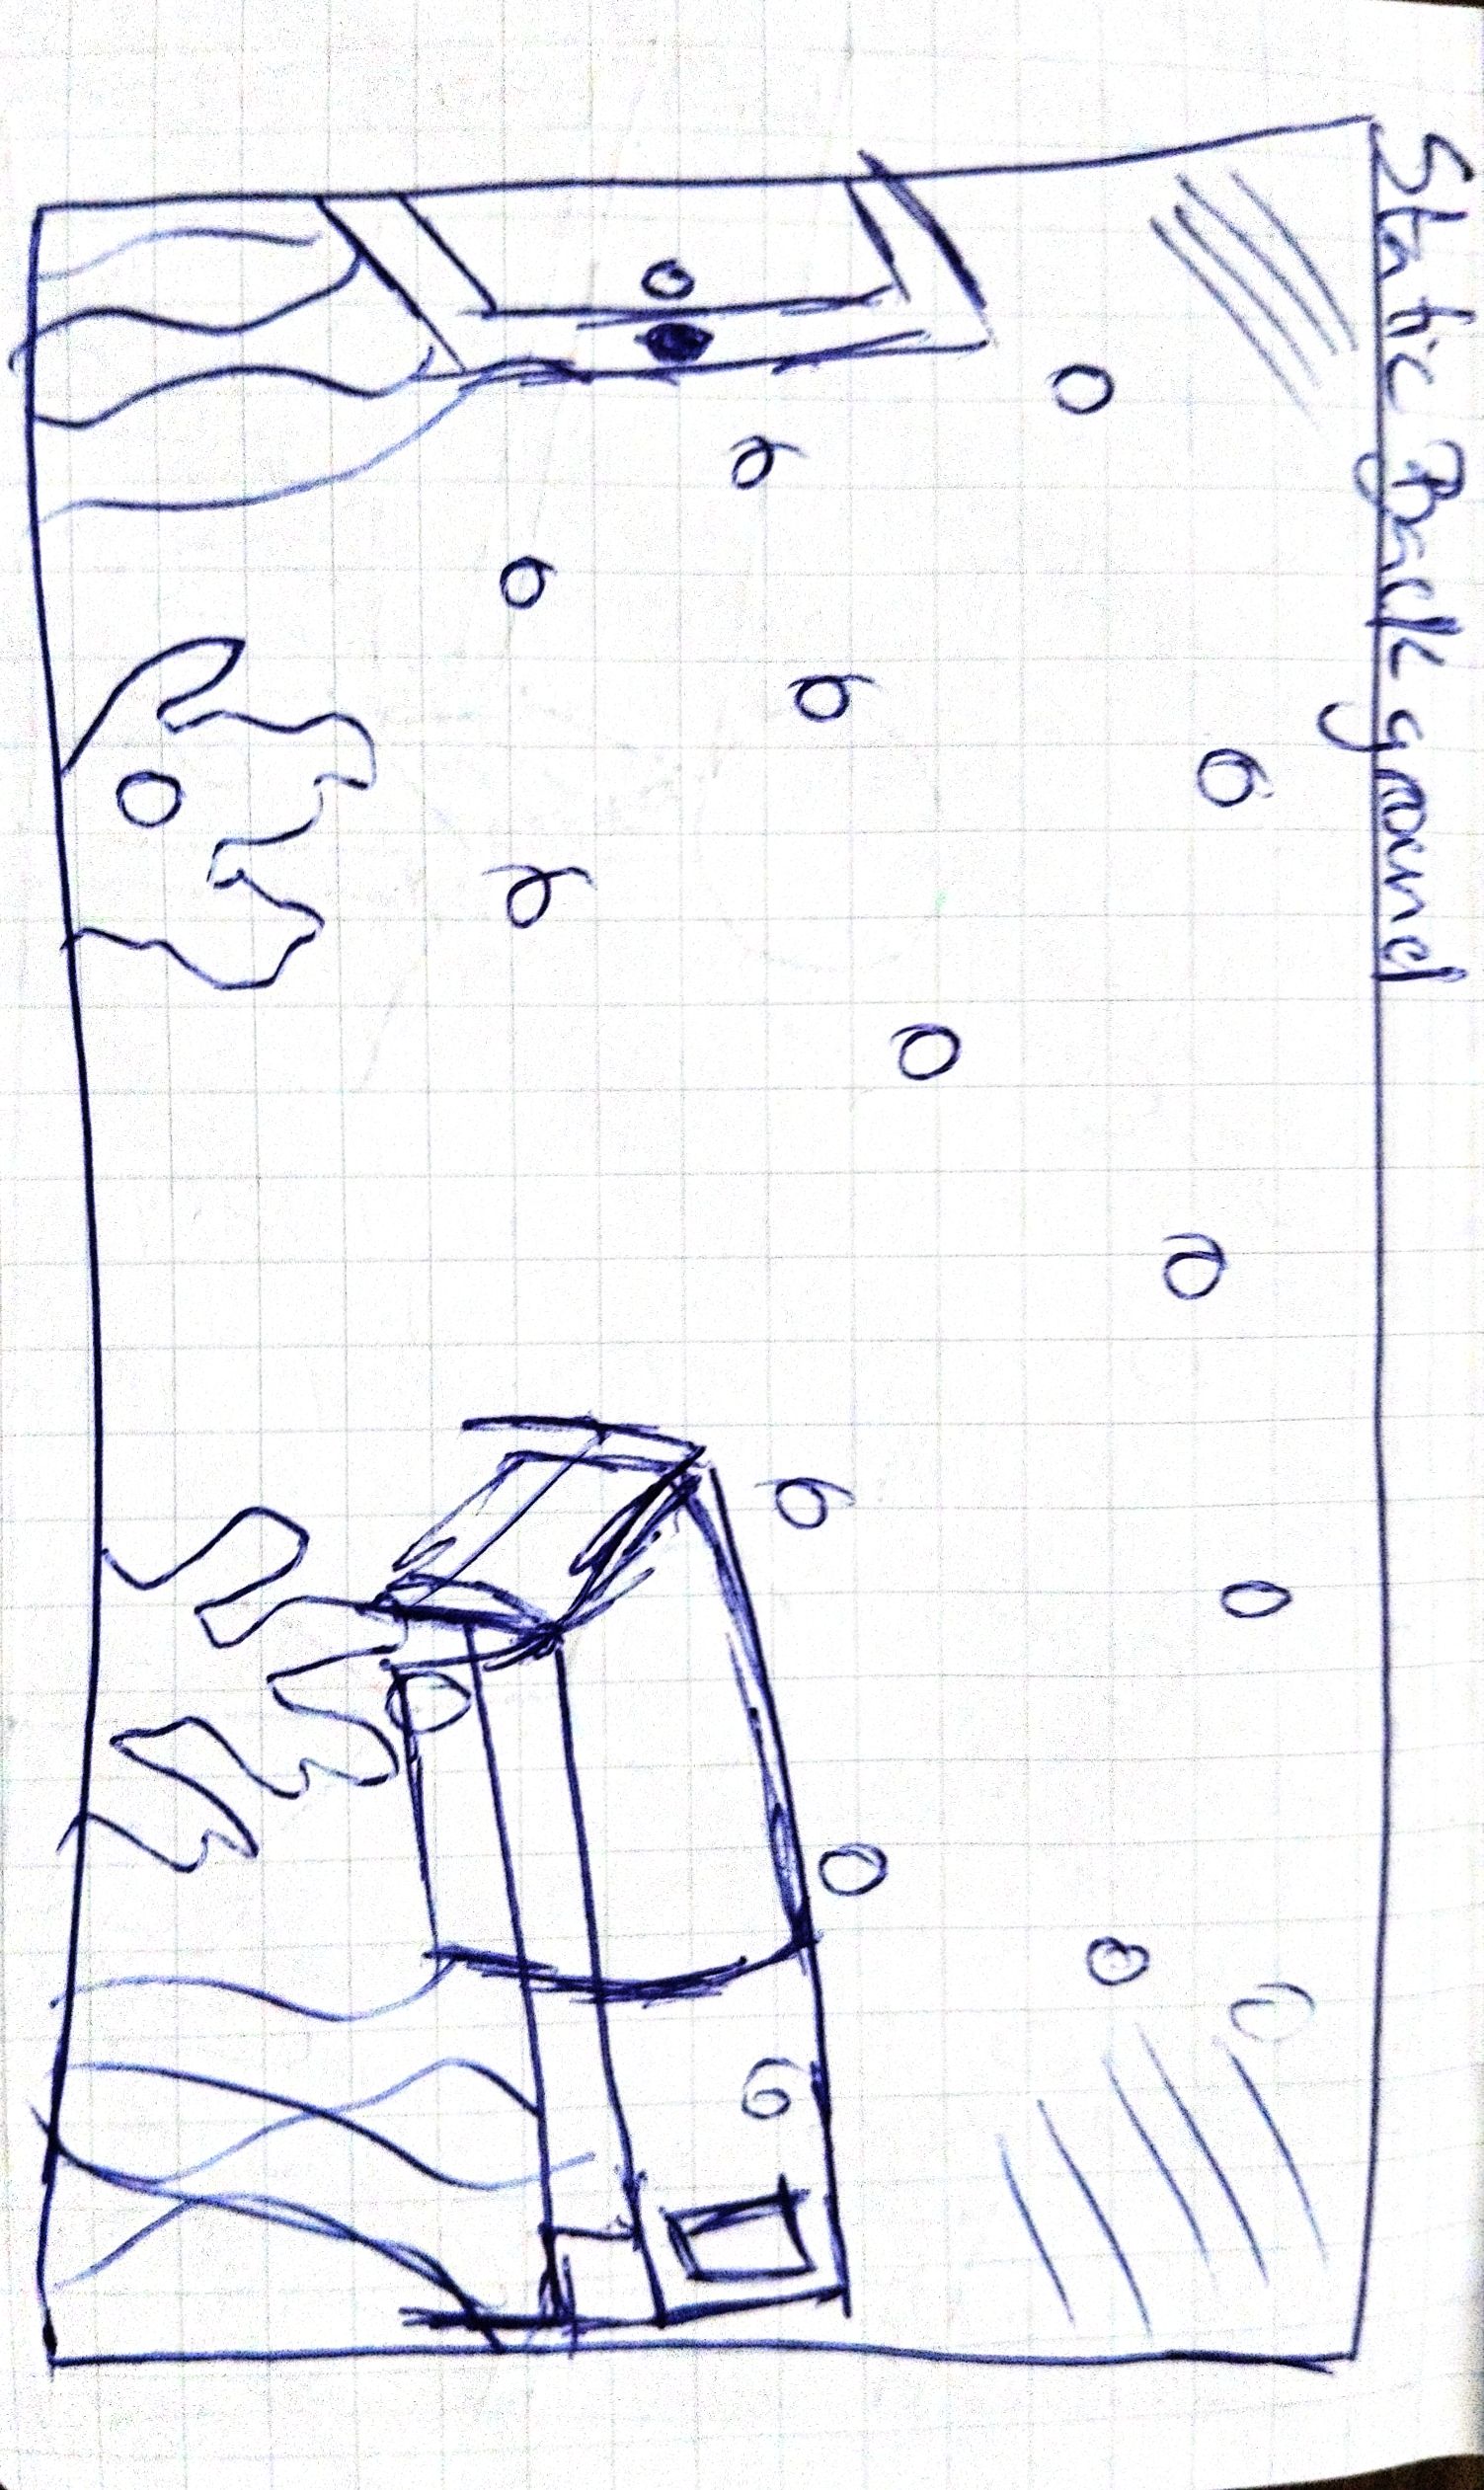 Static Background